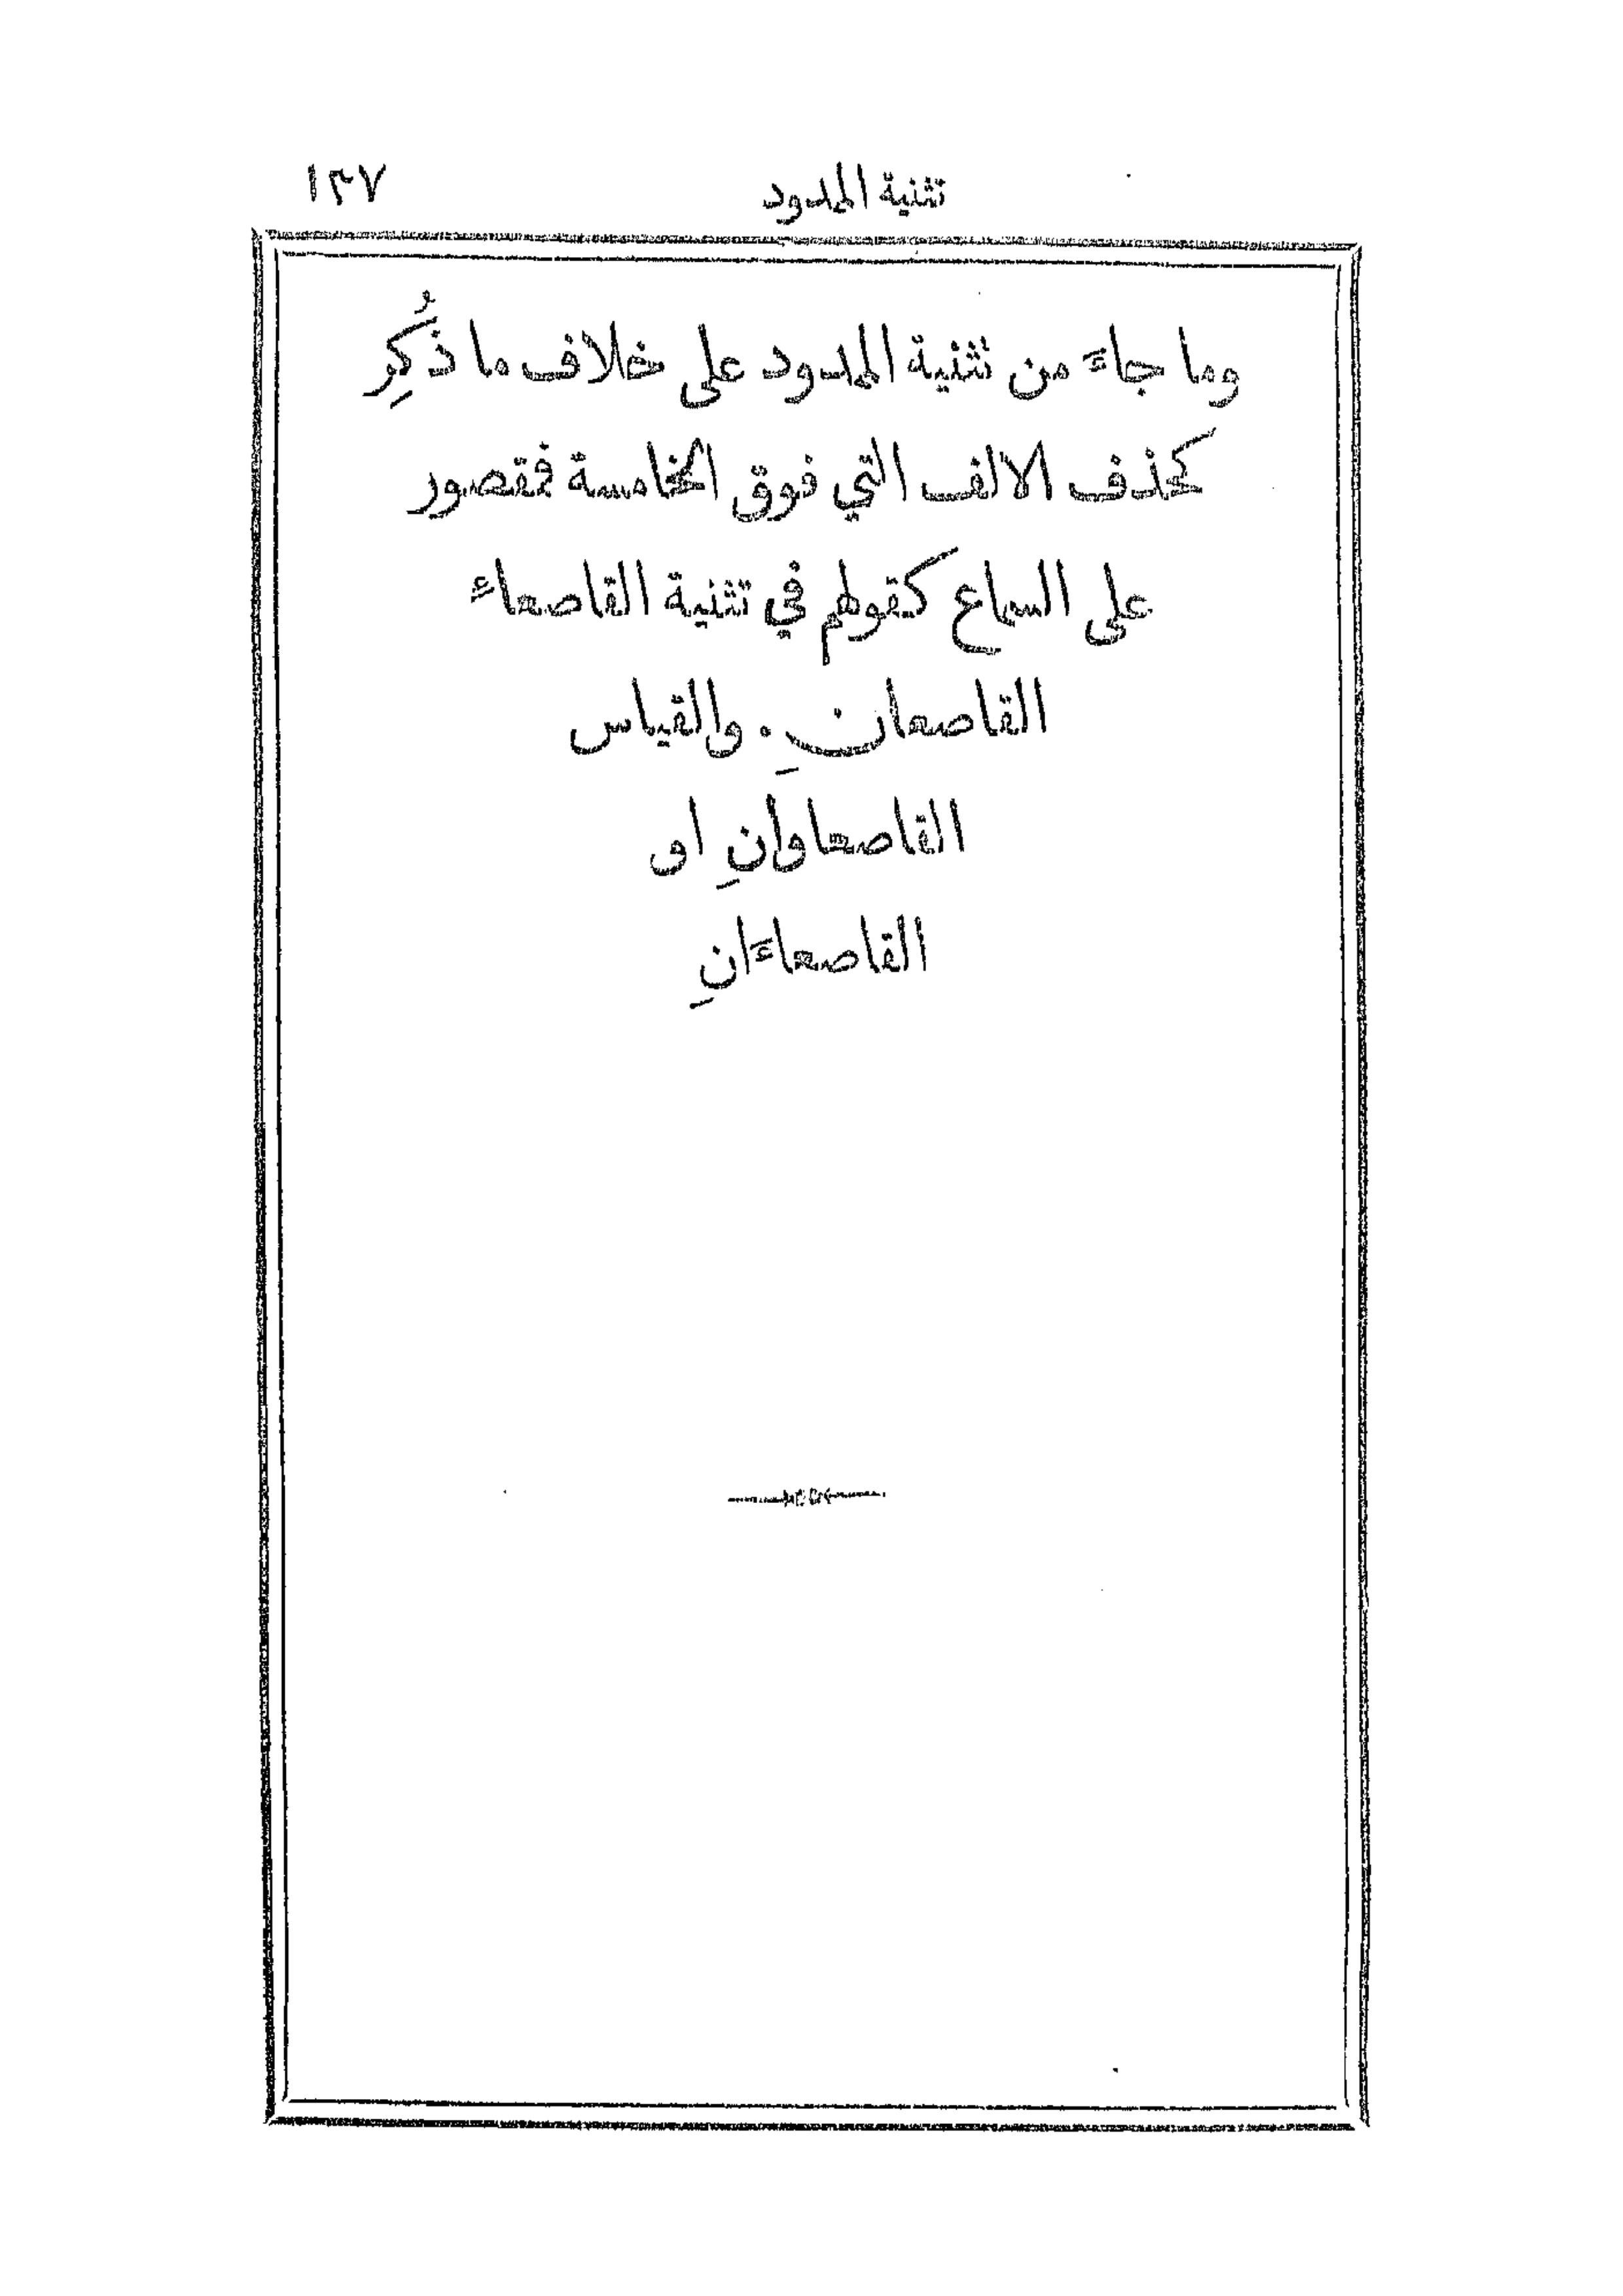 تثنية الممدود ١٢٧
وما جاءَ من تثنية الممدود على خلاف ما ذُكِر
كحذف الالف التي فوق الخامسة فمقصور
على السماع كقولهم في تثنية القاصعاء
القاصعانِ. والقياس
القاصعاوانِ او
القاصعاءَانِ